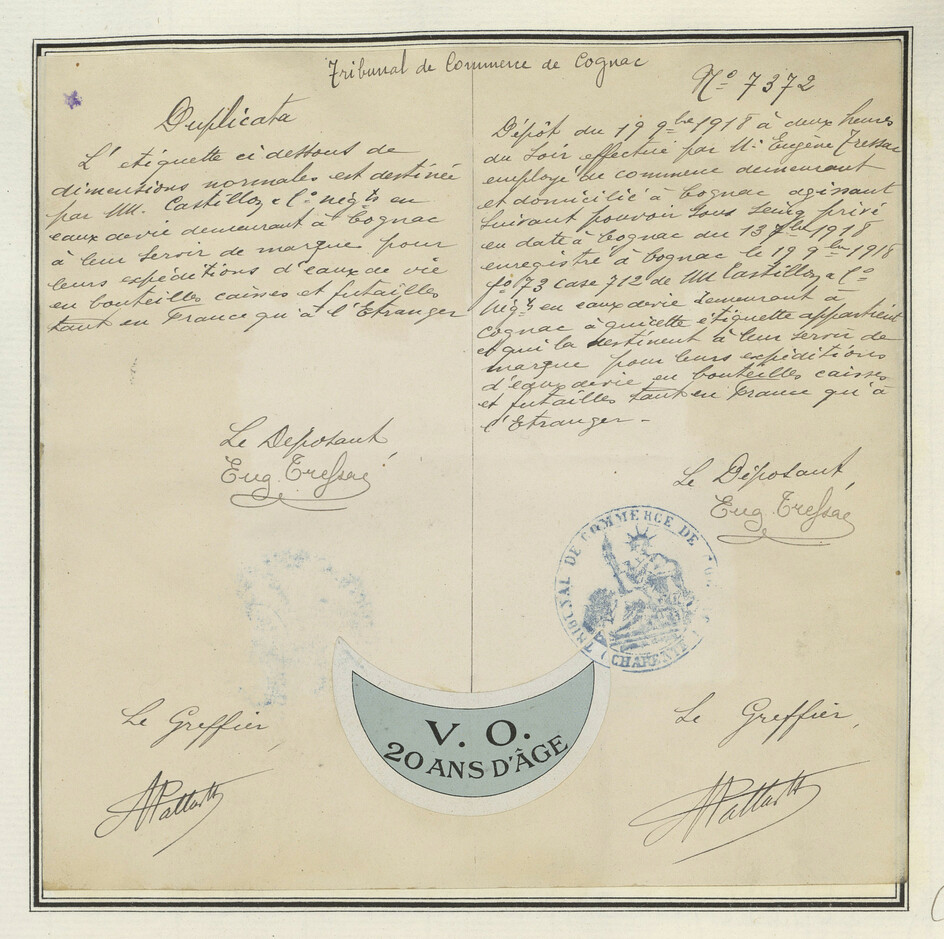 Tribunal de Commerce de Cognac
Duplicata
L'etiquette ci dessous de
dimensions normales est destinée
par MM. Castillon & Cº négts en
eaux de vie demeurant à Cognac
à leur servir de marque pour
leurs expéditions d'eaux de vie
en bouteilles caisses et futailles
tant en France qu'à l'Etranger
Le Déposant,
Eug. Tressac
Le Greffier,
Nº 7372
Dépôt du 19 9bre 1918 à deux heures
du soir effectué par Mr Eugène Tressac
employé de commerce demeurant
et domicilié à Cognac agissant
suivant pouvoir sous seing privé
en date à Cognac du 13 1918
enregistré à Cognac le 19 9bre 1918
fº 73 case 712 de MM Castillon & Cº
négts en eaux de vie demeurant à
Cognac à qui cette étiquette appartient
et qui la destinent à leur servir de
marque pour leurs expéditions
d'eaux de vie en bouteilles caisses
et futailles tant en France qu'à
l'Etranger -
Le Déposant,
Eug. Tressac
TRIBUNAL DE COMMERCE DE
(CHARENTE)
Le Greffier,
V. O.
20 ANS D'ÂGE